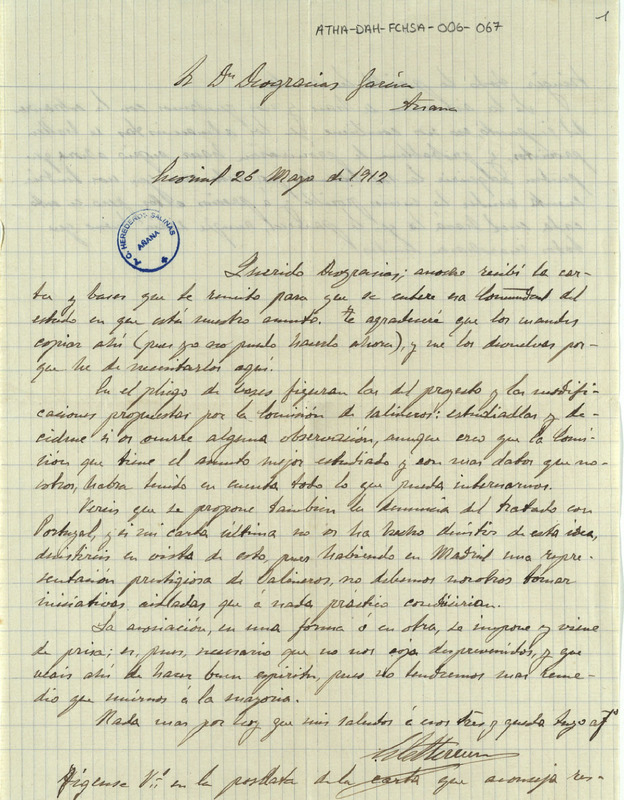 1
ATHA-DAH-FCHSA-006-067
Sr Dn Deogracias García
Arana
26 Mayo de 1912
T. C. HEREDEROS SALINAS
ARANA
Querido Deogracias; anoche recibí la car-
ta y bases que te remito para que se entere esa Comunidad del
estado en que está nuestro asunto. Te agradeceré que los mandes
copiar ahí (pues yo no puedo hacerlo ahora), y me los devuelvas por-
que he de necesitarlos aquí.
En el pliego de bases figuran las del proyecto y las modifi-
caciones propuestas por la Comisión de salineros: estudiadlas y de-
cidme si os ocurre alguna observación, aunque creo que la Comi-
sión que tiene el asunto mejor estudiado y con mas datos que no-
sotros, habra tenido en cuenta todo lo que pueda interesarnos.
Vereis que se propone tambien la denuncia del tratado con
Portugal, y si mi carta última no os ha hecho desistir de esta idea,
desistireis en vista de esto, pues habiendo en Madrid una repre-
sentación prestigiosa de Salineros, no debemos nosotros tomar
iniciativas aisladas que á nada práctico conducirian.
La asociación, en una forma ó en otra, se impone y viene
de prisa; es, pues, necesario que no nos coja desprevenidos, y que
veais ahi de hacer buen espiritu, pues no tendremos mas reme-
dio que unirnos á la mayoria.
Nada mas por hoy que mis saludos á esos tres y queda tuyo afmo
Fígense Vs en la postdata de la carta que aconseja res-